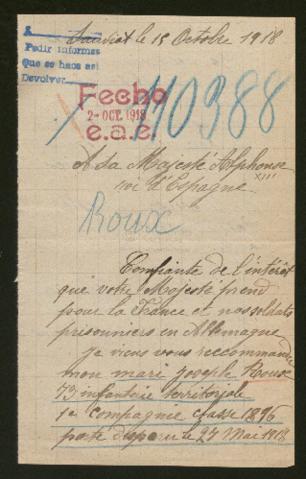 Sauviat le 15 Octobre 1918
A
Pedir informes
Que se haos así
Devolver
Fecho
2- OCT. 1918
e.a.e.
110388
A Sa Majesté Alphonse XIII
roi d'Espagne
Roux
Confiante de l'intérêt
que votre Majesté prend
pour la France et nos soldats
prisonniers en Allemagne
je viens vous recommander
mon mari Joseph Roux
73 infanterie territoriale
1e Compagnie classe 1896
porté disparu le 27 Mai 1918